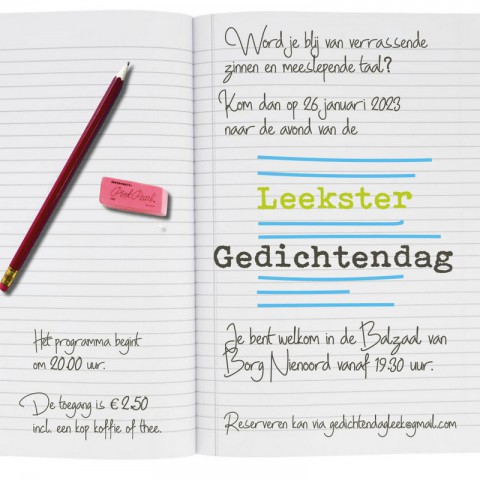 Word je blij van verrassende
zinnen en meeslepende taal?
Kom dan op 26 januari 2023
naar de avond van de
Leekster
Gedichtendag
Je bent welkom in de Balzaal van
Borg Nienoord vanaf 19:30 uur.
Reserveren kan via gedichtendagleek@gmail.com
Het programma begint
om 20.00 uur.
De toegang is € 2,50
incl. een kop koffie of thee.
Pink Pearl